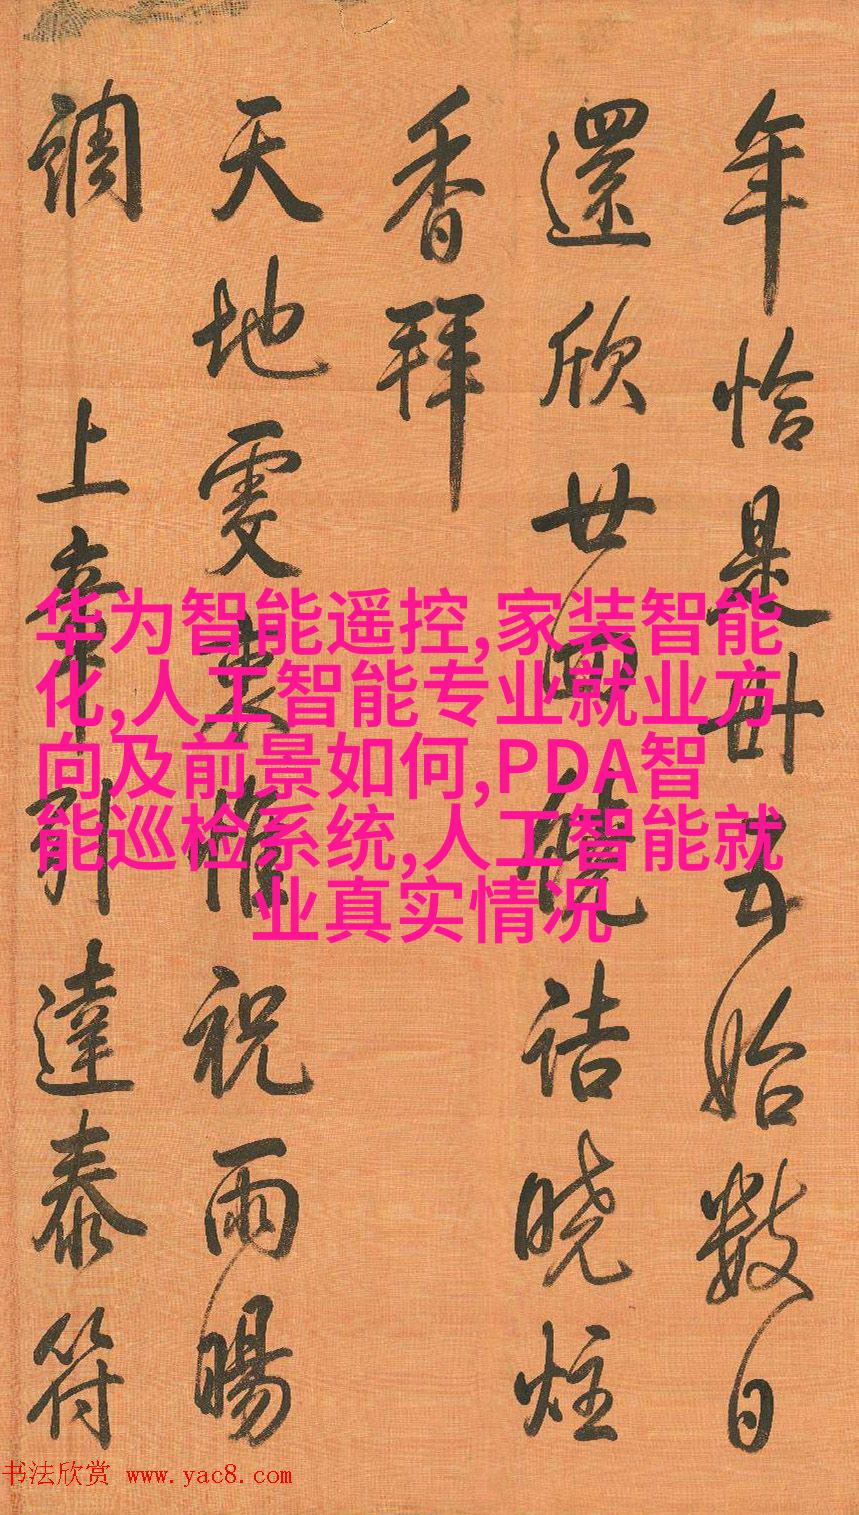 年恰是卅五始數日
還欣廿四繞詰曉炷
香拜
天地虔衷惟祝雨暘
調 上辛引達泰符
华为智能遥控,家装智能
化,人工智能专业就业方
向及前景如何,PDA智
能巡检系统,人工智能就
业真实情况
书法欣赏 www.yac8.com